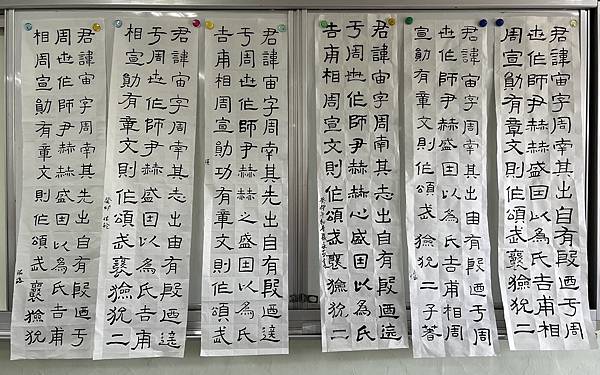 君諱宙字周南其出自有殷迺于周
世作師尹赫赫盛因以為氏吉甫相
周宣勛有章文則作頌武襄獫狁二
君諱宙字周南其出自有殷迺于周
世作師尹赫赫盛因以為氏吉甫相周
宣勛有章文則作頌武獫狁二子著
君諱宙字周南其先出自有殷迺迄
于周世作師尹赫赫之盛因以為氏
吉甫相周宣文則作頌武襄獫狁二
君諱宙字周南其先出自有殷迺迄
于周世作師尹赫赫之盛因以為氏
吉甫相周宣勛功有章文則作頌武
君諱宙字周南其志出由有殷迺迄
于周世作師尹赫赫盛因以為氏吉甫
相周宣勛有章文則作頌武襄獫狁二
君諱宙字周南其先出自有殷迺于
周世作師尹赫赫盛因以為氏吉甫
相周宣勛有章文則作頌武襄獫狁